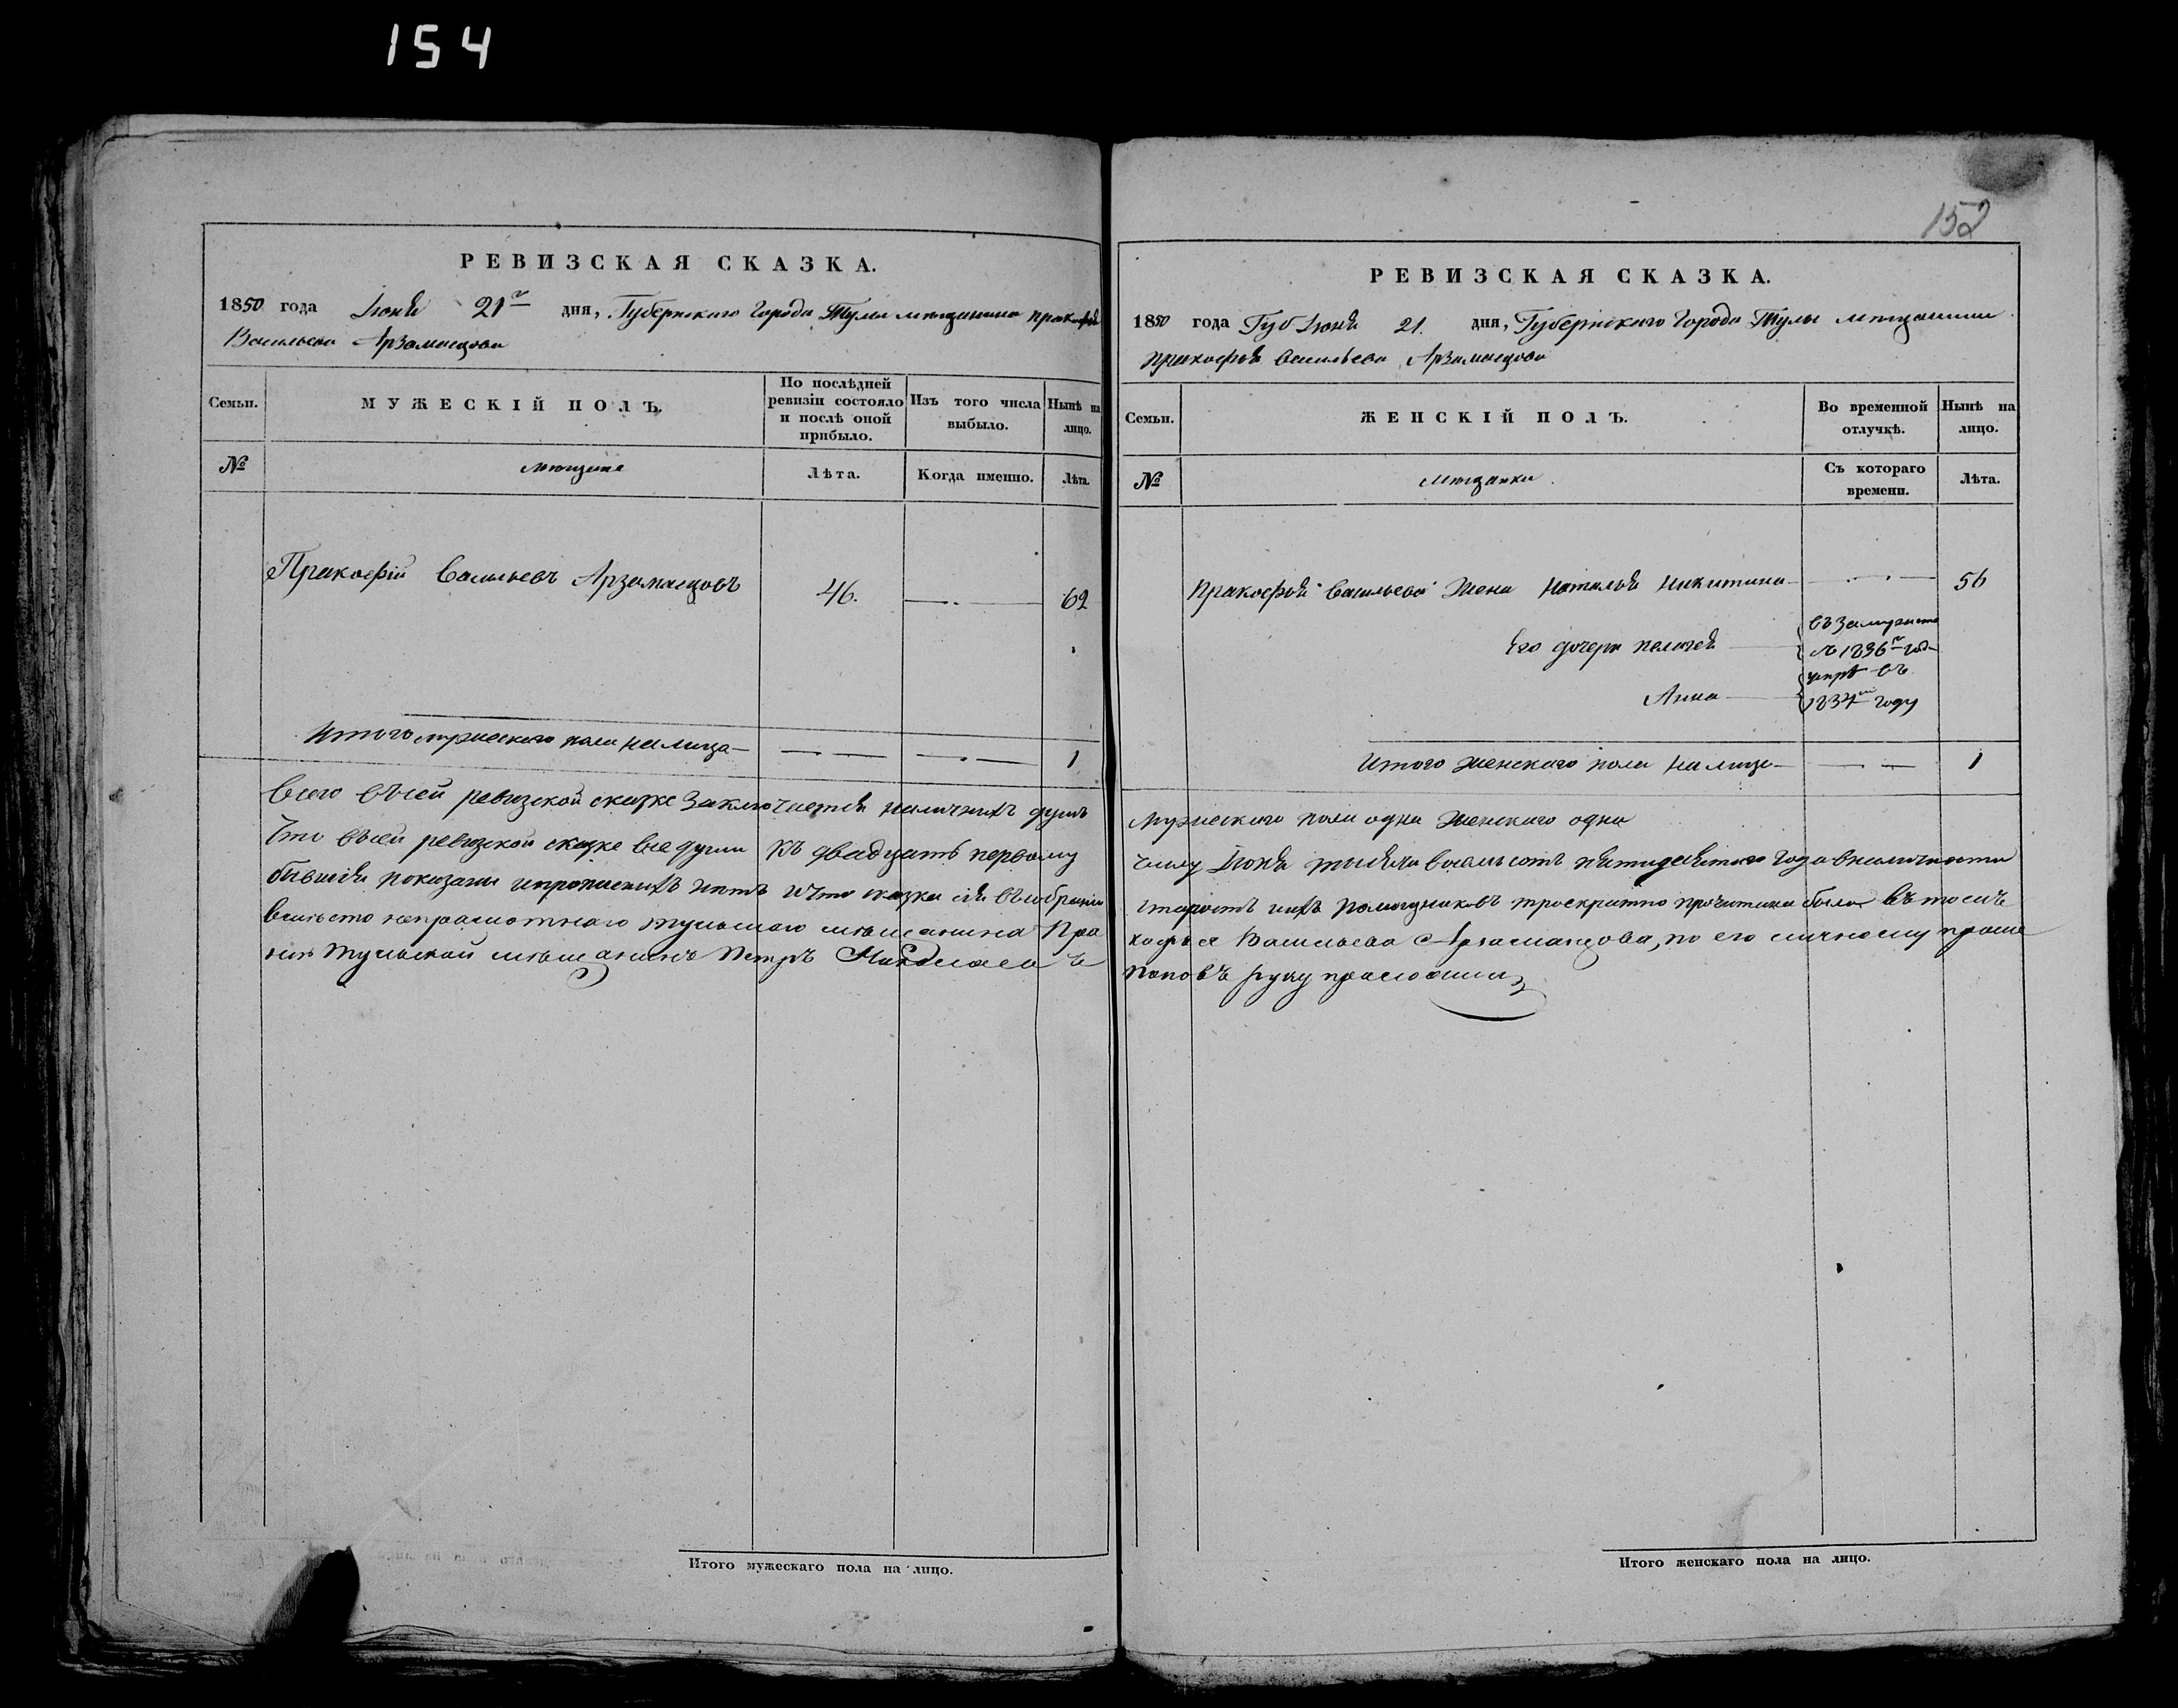 154
РЕВИЗСКАЯ СКАЗКА.
1850 года Іюня 21го дня, Губернскаго Города Тулы мещанина Пракофья
Васильева Арзамасцова
Семьи.
МУЖЕСКІЙ ПОЛЪ.
По послѣдней ревизіи состояло и послѣ оной прибыло.
Изъ того числа выбыло.
Нынѣ на лицо.
№
мещане
Лѣта.
Когда именно.
Лѣта.
Пракофій Васильевъ Арзамасцовъ 46. 62
Итого мужескаго пола налица 1
Всего въсей ревизской скаске заключается наличныхъ душъ
Что въсей ревизской скаске все души къ двадцать первому
бывшія показаны ипрописныхъ нетъ ичто сказка сія въсобраніи
вместо неграмотнаго тульскаго мещанина Пра
ніи тульской мещанинъ Петръ Николаевъ
Итого мужескаго пола на лицо.
152
РЕВИЗСКАЯ СКАЗКА.
1850 года Губ Іюня 21. дня, Губернскаго Города Тулы мещанина
Пракофья Васильева Арзамасцова
Семьи.
ЖЕНСКІЙ ПОЛЪ.
Во временной отлучкѣ.
Нынѣ на лицо.
№
мещанки.
Съ котораго времени.
Лѣта.
Пракофья Васильева Жена Наталья Никитина 56
Его дочери Пелагея
въ замужстве
съ 1836го года
Анна
умре въ
1837м году
Итого женскаго пола налицо 1
мужескаго пола одна Женскаго одна
числу Іюня тысяча восемьсотъ пятидесятаго Года вналичности
старостъ ихъ Помощниковъ троекратно прочитана была въ томъ
кофья Васильева Арзамасцова, по его личному проше
Поповъ руку приложилъ
Итого женскаго пола на лицо.